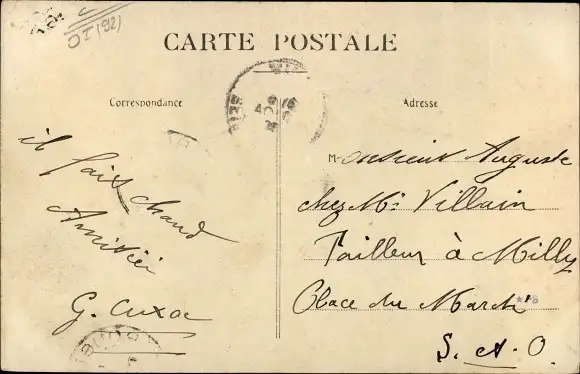 OI (92)
CARTE POSTALE
Correspondance
Adresse
il fais chaud
Amitiéi
G. Cuxac
Monsieur Auguste
chez Mr Villain
Tailleur à Milly
Place du Marché
S. et O.